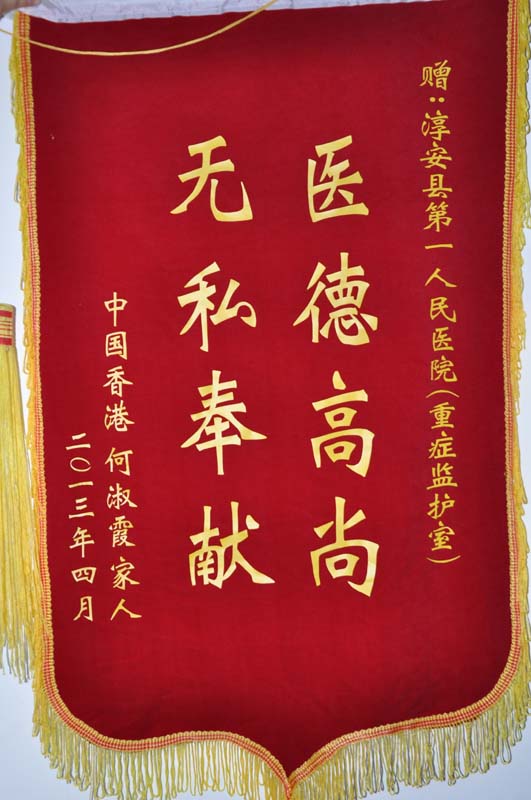 赠：淳安县第一人民医院（重症监护室）
医德高尚
无私奉献
中国香港何淑霞家人
二〇一三年四月